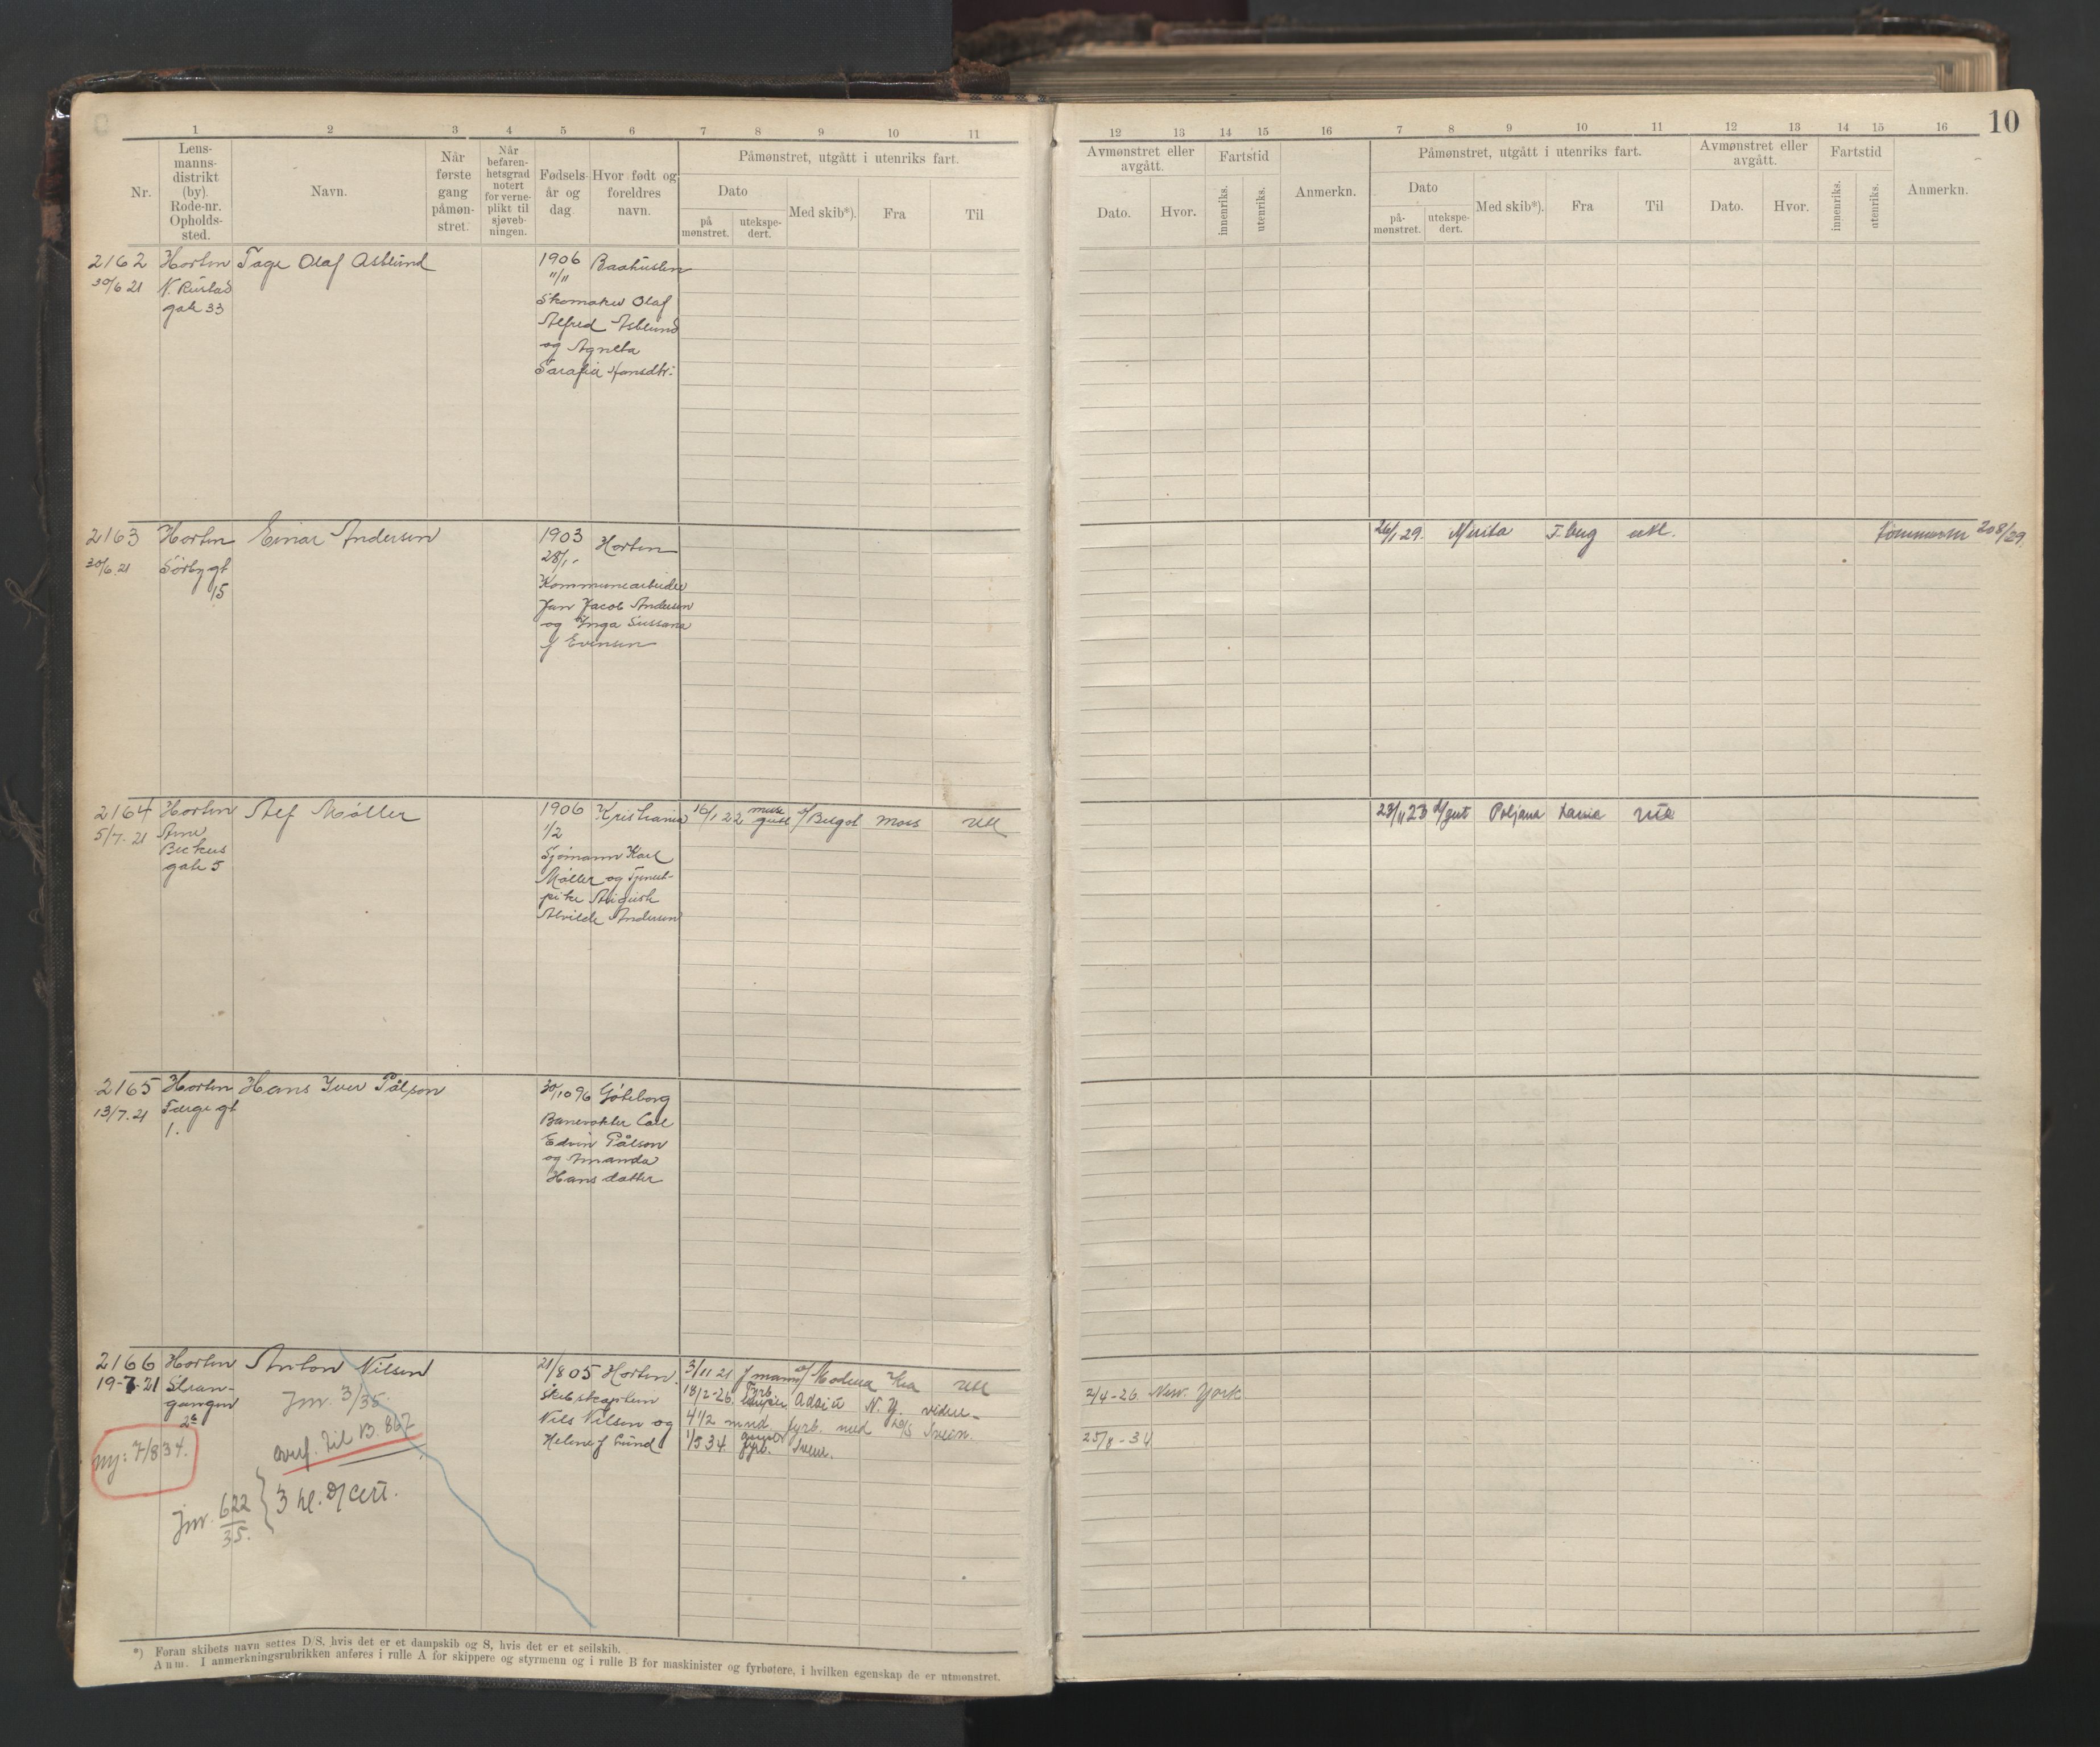 10
1 2 3 4 5 6 7 8 9 10 11
12 13 14 15 16 7 8 9 10 11 12 13 14 15 16
Nr.
Lens-
manns-
distrikt
(by).
Rode-nr.
Opholds-
sted.
Navn.
Når
første
gang
påmøn-
stret.
Når
befaren-
hetsgrad
notert
for verne-
plikt til
sjøveb-
ningen.
Fødsels-
år og
dag
Hvor født og
foreldres
navn.
Påmønstret, utgått i utenriks fart.
Dato
på
mønstret.
utekspe-
dert.
Med skib*).
Fra
Til
Avmønstret eller
avgått.
Dato.
Hvor.
Fartstid
innenriks.
utenriks.
Anmerkn.
Påmønstret, utgått i utenriks fart.
Dato
på-
mønstret.
utekspe-
dert.
Med skib*).
Fra
Til
Avmønstret eller
avgått.
Dato.
Hvor.
Fartstid
innenriks.
utenriks.
Anmerkn.
2162 Horten Tage Olaf Asblund 1906 Baahuslen
30/6 21 N. Rustad 11/11
gate 33 Skomaker Olaf
Alfred Asblund
og Agneta
Sarafia Hansdtr.
2163 Horten Einar Andersen 1903 Horten
30/6.21 Sørby gt 28/1
15 Kommunearbeider
Jan Jacob Andersen
og Inga Sussana
f Evensen
26/1 29. Merita T.berg utl. 208/29
2164 Horten Alf Møller 1906 Kristiania 16/1 22 Moss Utl
5/7. 21 Arne 1/2
Beckus
gate 5 Sjømann Karl
Møller og Tjeneste-
pike Auguste
Alvilde Andersen
23/11 23 Poljana
2165 Horten Hans Iver Pålson 30/10 96 Göteborg
13/7. 21 Færge gt
1.
Banevokter Carl
Edvin Pålson
og Amanda
Hansdatter
2166 Horten Anton Nilsen 21/8 05 Horten. 3/11 21 J mann Modena Kra Utl
19-7-21 Stran-
gangen
2b
Skibskaptein
Nils Nilsen og
Helene f Lund
18/2-26 Fyrb. N.Y.
4 1/2 mnd. fyrb. med Svein.
1/5 34 fyrb. Svein.
2/4-26 New. York
25/8-34
Jnr. 3/35
overf. til B. 867
ny: 7/8 34.
Jnr. 622
35.
3 hl. D/cert.
*) Foran skibets navn settes D/S, hvis det er et dampskib og S, hvis det er et seilskib.
Anm. I anmerkningsrubrikken anføres i rulle A for skippere og styrmenn og i rulle B for maskinister og fyrbøtere, i hvilken egenskap de er utmønstret.